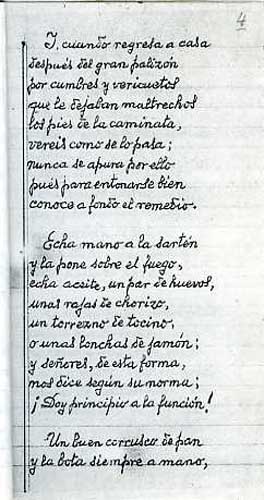 4
Y, cuando regresa a casa
después del gran palizón
por cumbres y vericuetos
que le dejaban maltrechos
los pies de la caminata,
vereis como se lo pasa;
nunca se apura por ello
pués para entonarse bien
conoce a fondo el remedio.
Echa mano a la sartén
y la pone sobre el fuego,
echa aceite, un par de huevos,
unas rajas de chorizo,
un torrezno de tocino,
o unas lonchas de jamón;
y señores, de esta forma,
nos dice según su norma;
¡Doy principio a la función!
Un buen corrusco de pan
y la bota siempre a mano,